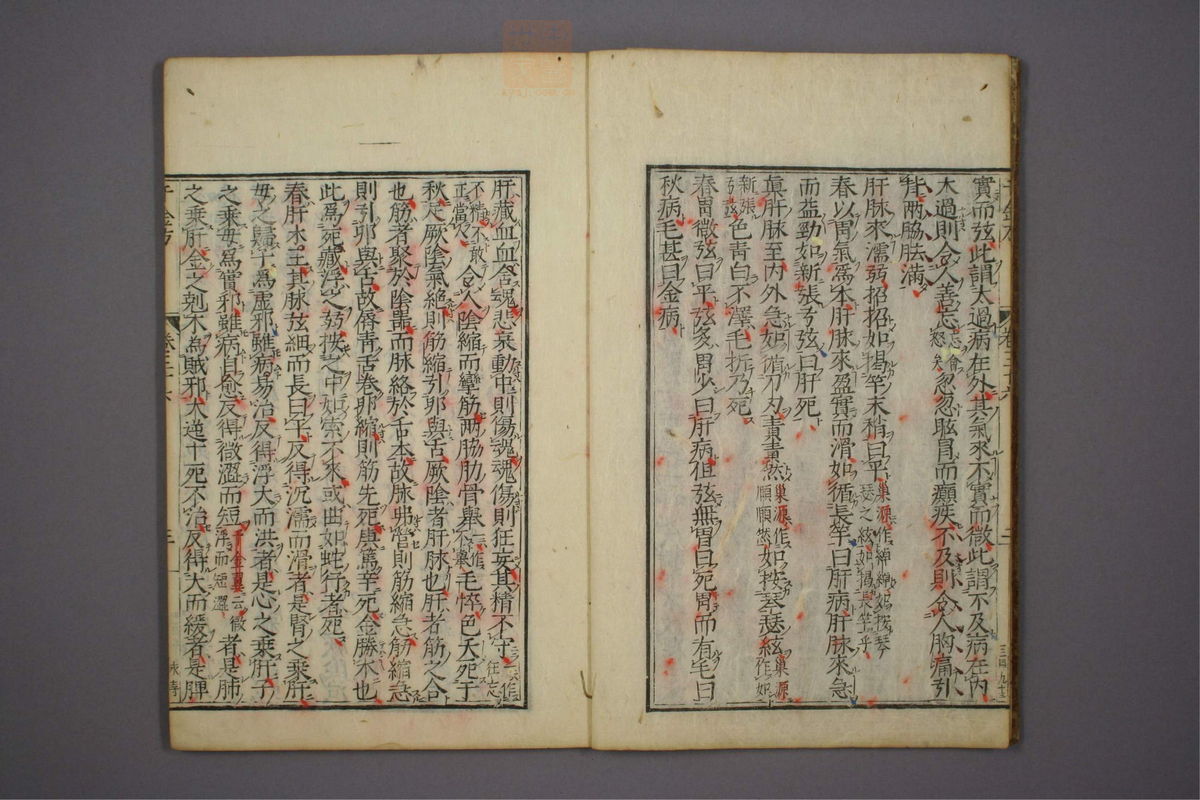 實而弦此謂太過病在外其氣來不實而微此謂不及病在內
太過則令人善忘忽忽眩冒而癲疾不及則令人胸痛引
背兩脇胠滿
肝脉來濡弱招招如揭竿末稍曰平巢源作綿綿如按琴瑟之絃如揭長竿
春以胃氣爲本肝脉來盈實而滑如循長竿曰肝病肝脉來急
而益勁如新張弓弦曰肝死
眞肝脉至內外急如循刀刃責責然巢源作賾賾然如按琴瑟絃巢源作如
新張弓弦色青白不澤毛折乃死
春胃微弦曰平弦多胃少曰肝病但弦無胃曰死胃而有毛曰
秋病毛甚曰金病
肝藏血血舍魂悲哀動中則傷魂魂傷則狂妄其精不守一作
不精不敢正當人令人陰縮而攣筋兩脇肋骨舉一作不舉毛悴色夭死于
秋足厥陰氣絕則筋縮引卵與舌厥陰者肝脉也肝者筋之合
也筋者聚於陰器而脉絡於舌本故脉弗營則筋縮急筋縮急
則引卵與舌故脣青舌卷卵縮則筋先死庚篤辛死金勝木也
此爲死藏浮之弱按之中如索不來或曲如蛇行者死
春肝木王其脉弦細而長曰平反得沉濡而滑者是腎之乘肝
母之歸子爲虛邪雖病易治反得浮大而洪者是心之乘肝子
之乘母爲實邪雖病自愈反得微濇而短千金翼云微浮而短濇者是肺
之乘肝金之剋木爲賊邪大逆十死不治反得大而緩者是脾